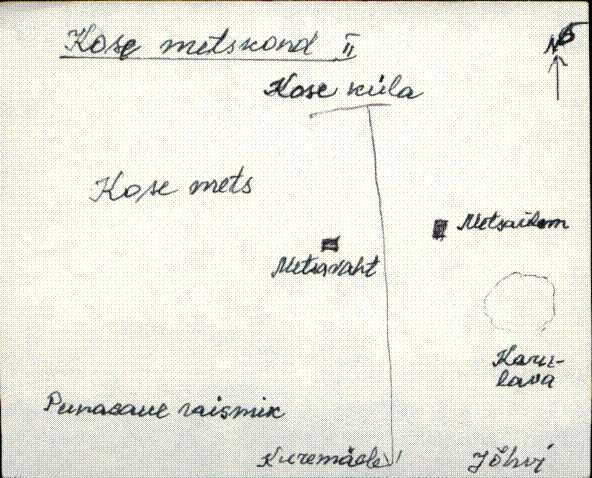 Kose metskond II
N
Kose küla
Kose mets
Metsaülem
Metsavaht
Karu-
lava
Punasoue raismik
Kuremäele
Jõhvi